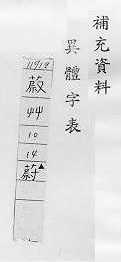 補充資料
異體字表
11919
蔚
艸
10
14
蔚▲